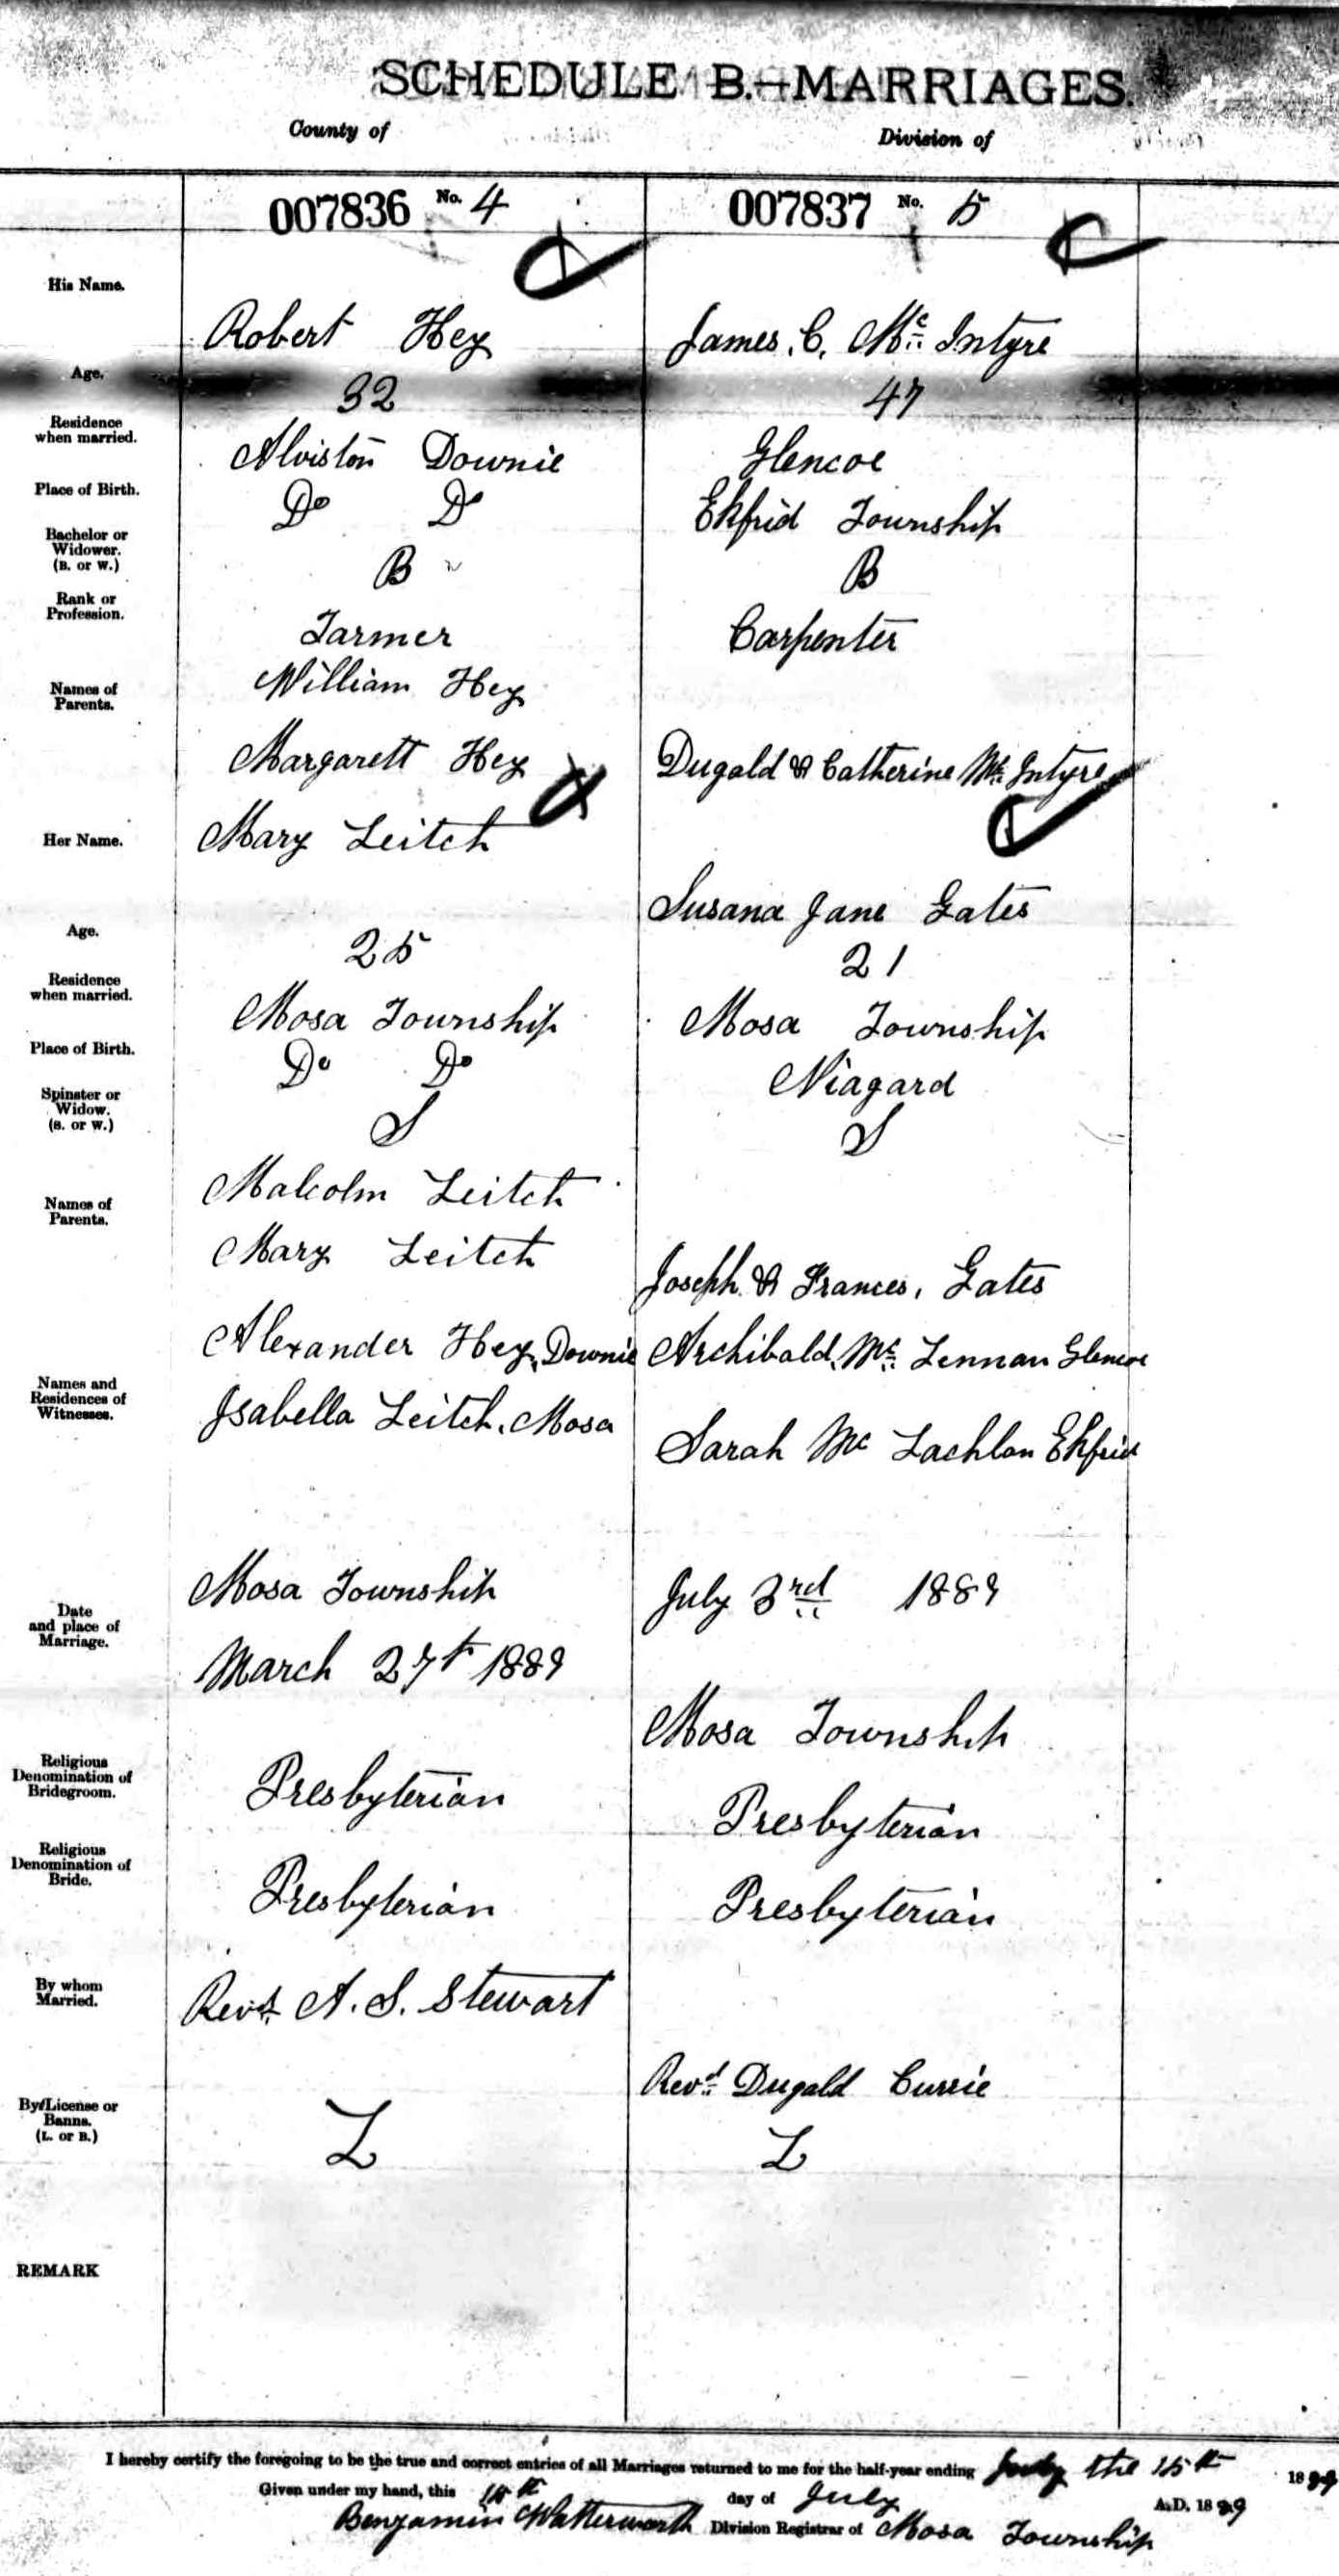 SCHEDULE B.—MARRIAGES.
County of
Division of
007836 No. 4
007837 No. 5
His Name.
Robert Hey
James. C. Mc Intyre
Age.
32
47
Residence when married.
Alviston Downie
Glencoe
Place of Birth.
Do Do
Ekfrid Township
Bachelor or Widower. (B. or W.)
B
B
Rank or Profession.
Farmer
Carpenter
Names of Parents.
William Hey
Margarett Hey
Dugald & Catherine Mc Intyre
Her Name.
Mary Leitch
Susana Jane Gates
Age.
25
21
Residence when married.
Mosa Township
Mosa Township
Place of Birth.
Do Do
Niagard
Spinster or Widow. (S. or W.)
S
S
Names of Parents.
Malcolm Leitch
Mary Leitch
Joseph & Frances, Gates
Names and Residences of Witnesses.
Alexander Hey, Downie
Isabella Leitch, Mosa
Archibald, Mc Lennan Glencoe
Sarah Mc Lachlan Ekfrid
Date and place of Marriage.
Mosa Township
March 27th 1889
July 3rd 1889
Mosa Township
Religious Denomination of Bridegroom.
Presbyterian
Presbyterian
Religious Denomination of Bride.
Presbyterian
Presbyterian
By whom Married.
Revd. A. S. Stewart
Revd. Dugald Currie
By License or Banns. (L. or B.)
L
L
REMARK
I hereby certify the foregoing to be the true and correct entries of all Marriages returned to me for the half-year ending July the 15th 1889
Given under my hand, this 15th day of July A.D. 1889
Benjamin Watterworth Division Registrar of Mosa Township